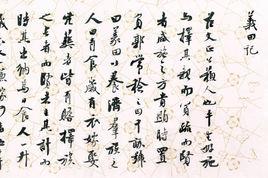 義田记
范文正公蘇人也平生好施
与擇其親而貧疏而賢
者咸施之方貴顯時置
負郭常稔之田千畝號
曰義田以養濟群族之
人日有食歲有衣嫁娶
凶葬者皆有贍擇族
之長而賢者主其計而
時其出納焉日食人一升